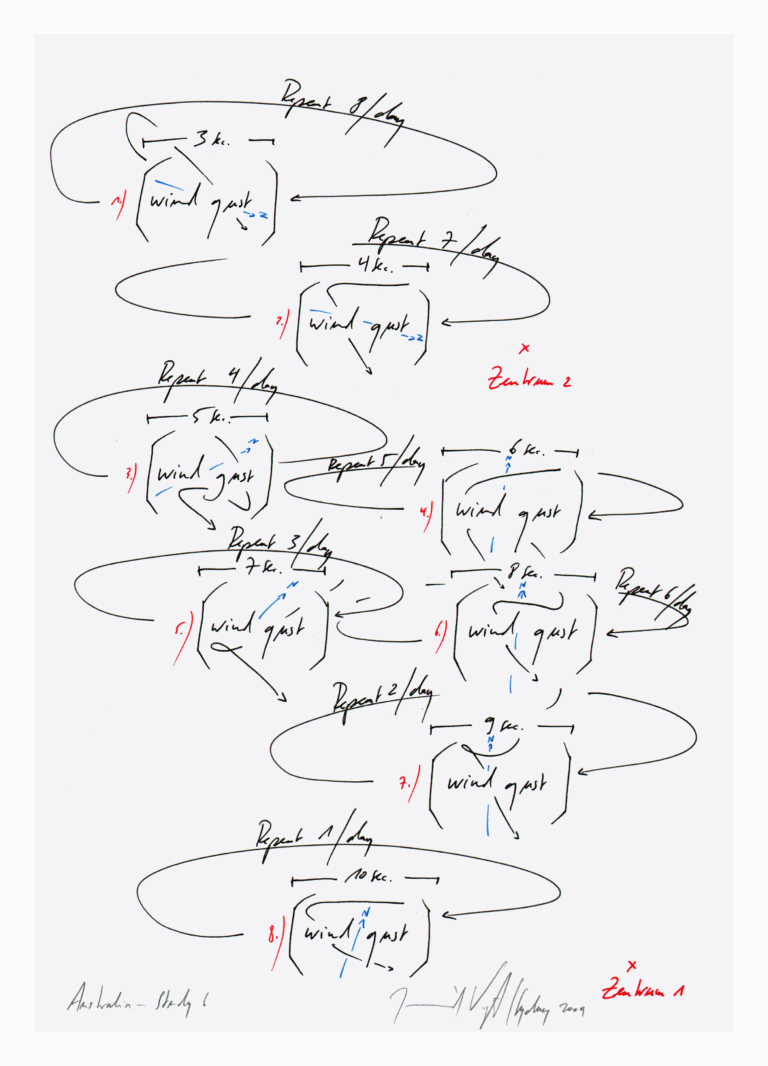 Repeat 8/day
3 sec.
1.) wind gust
N
Repeat 7/day
4 sec.
2.) wind gust
N
x
Zentrum 2
Repeat 4/day
5 sec.
N
3.) wind gust
Repeat 5/day
6 sec.
N
4.) wind gust
Repeat 3/day
7 sec.
N
5.) wind gust
8 sec.
N
Repeat 6/day
6.) wind gust
Repeat 2/day
9 sec.
N
7.) wind gust
Repeat 1/day
10 sec.
N
8.) wind gust
x
Zentrum 1
Australia – Study 6
/Sydney 2009